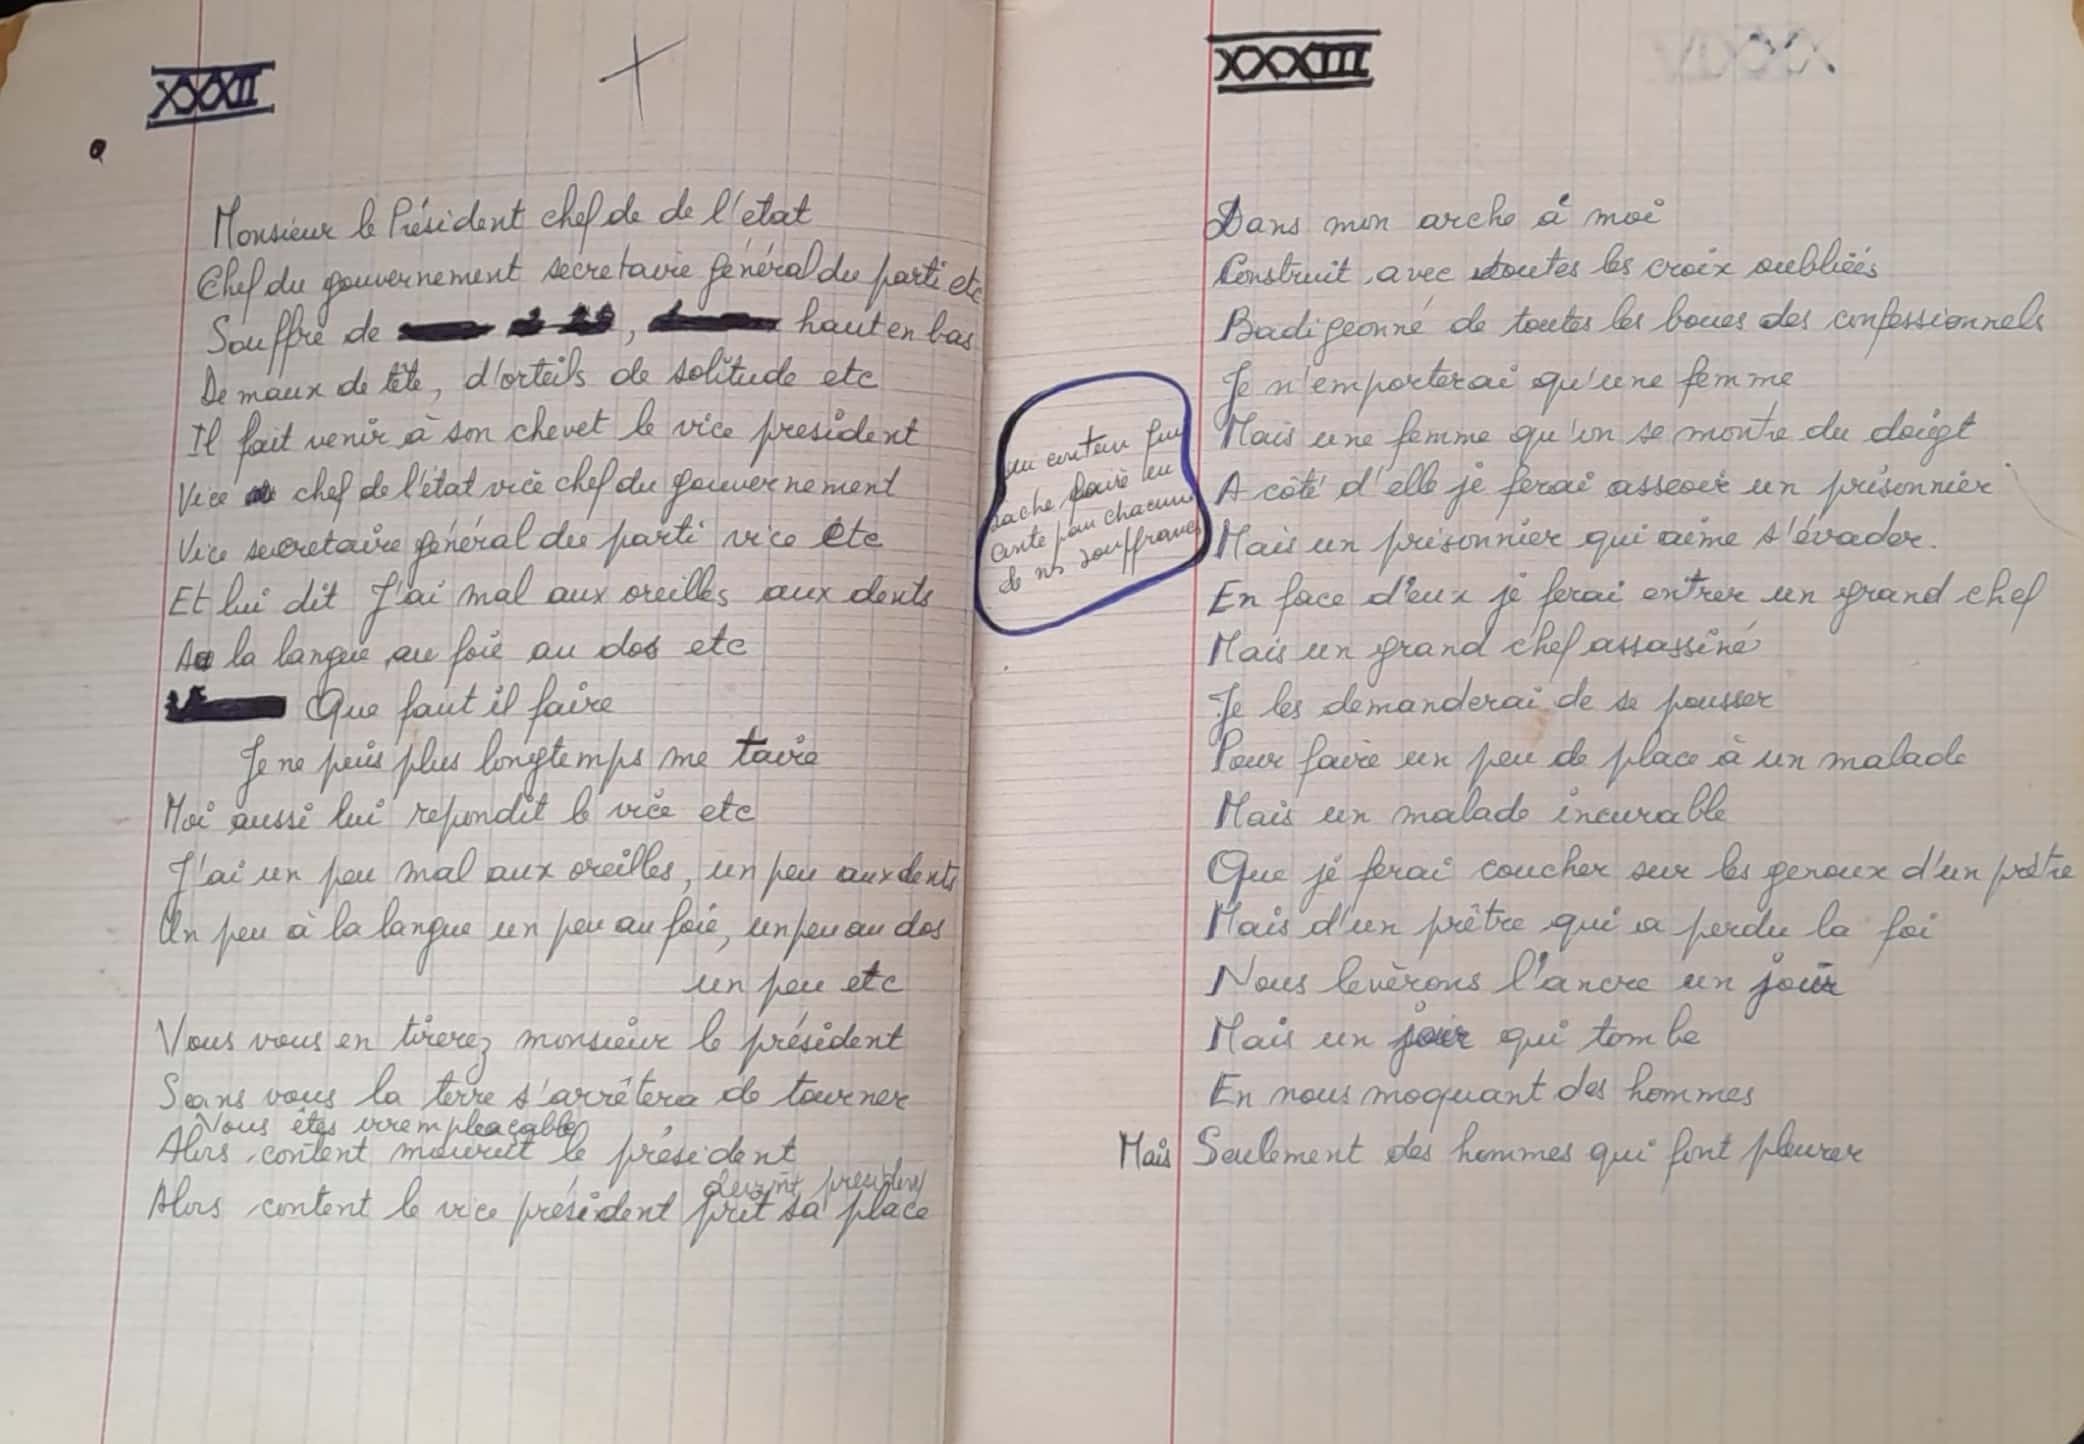 XXXII
Monsieur le Président chef de de l'état
Chef du gouvernement secretaire général du parti etc
Souffre de , haut en bas
De maux de tête, d'orteils de solitude etc
Il fait venir à son chevet le vice president
Vice chef de l'état vice chef du gouvernement
Vice secretaire général du parti vice etc
Et lui dit J'ai mal aux oreilles aux dents
A la langue au foie au dos etc
Que faut il faire
Je ne peus plus longtemps me taire
Moi aussi lui repondit le vice etc
J'ai un peu mal aux oreilles, un peu aux dents
Un peu à la langue un peu au foie, un peu au dos
un peu etc
Vous vous en tirerez monsieur le président
Sans vous la terre s'arrêtera de tourner
Vous êtes irremplaçable
Alors content mourut le président
devint president
Alors content le vice président prit sa place
un conteur qui
sache faire un
conte pour chacune
de nos souffrances
XXXIII
Dans mon arche à moi
Construit avec toutes les croix oubliées
Badigeonné de toutes les boues des confessionnels
Je n'emporterai qu'une femme
Mais une femme qu'on se montre du doigt
A côté d'elle je ferai asseoir un prisonnier
Mais un prisonnier qui aime s'évader.
En face d'eux je ferai entrer un grand chef
Mais un grand chef assassiné
Je les demanderai de se pousser
Pour faire un peu de place à un malade
Mais un malade incurable
Que je ferai coucher sur les genoux d'un prêtre
Mais d'un prêtre qui a perdu la foi
Nous leverons l'ancre un jour
Mais un jour qui tombe
En nous moquant des hommes
Mais Seulement des hommes qui font pleurer